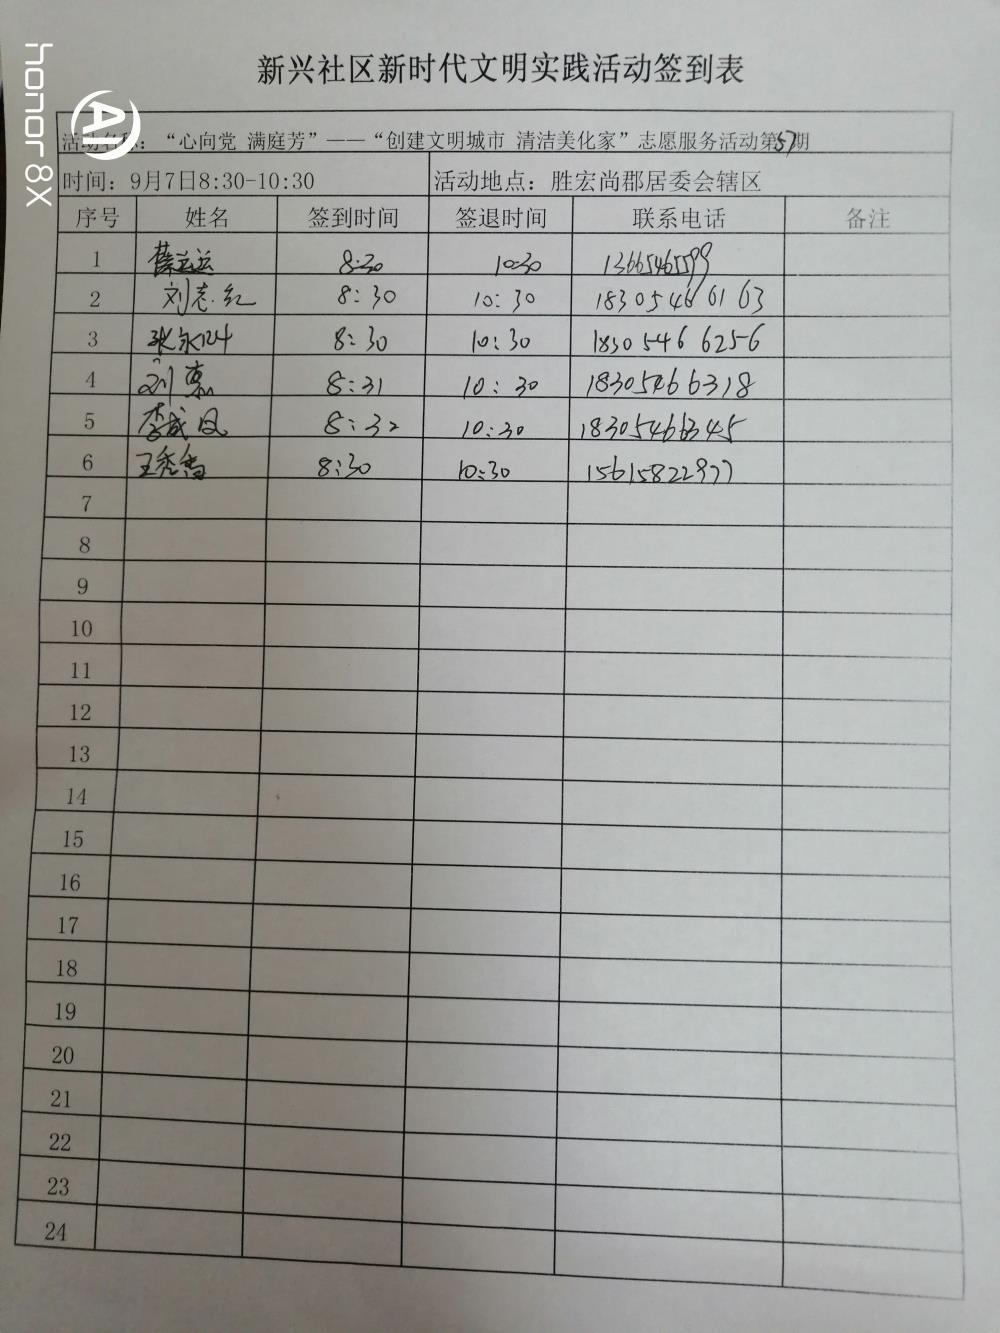 honor 8X
新兴社区新时代文明实践活动签到表
活动名称：“心向党 满庭芳”——“创建文明城市 清洁美化家”志愿服务活动第57期
时间：9月7日8:30-10:30 活动地点：胜宏尚郡居委会辖区
序号 姓名 签到时间 签退时间 联系电话 备注
1 8:30 10:30 13665465599
2 刘志红 8:30 10:30 18305466163
3 张永 8:30 10:30 18305466256
4 刘惠 8:31 10:30 18305466318
5 李成凤 8:32 10:30 18305466345
6 王秀香 8:30 10:30 15615822977
7
8
9
10
11
12
13
14
15
16
17
18
19
20
21
22
23
24